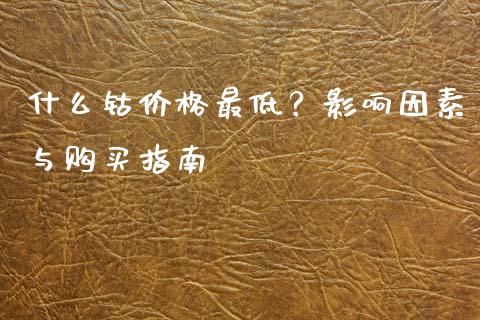 什么钴价格最低？影响因素
与购买指南